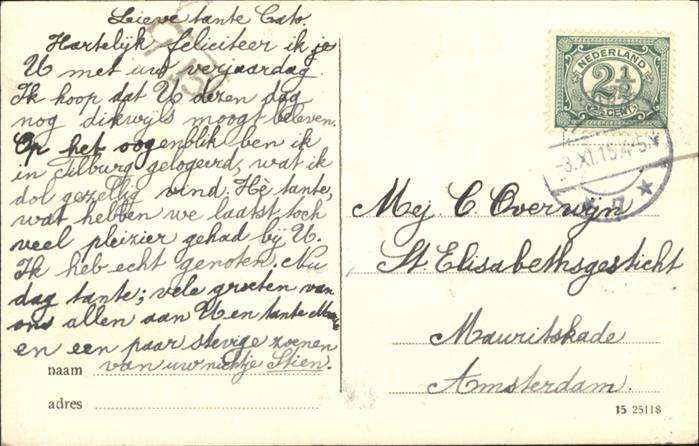 Lieve tante Cato.
Hartelyk feliciteer ik je
U met uw verjaardag.
Ik hoop dat U dezen dag
nog dikwyls moogt beleven.
Op het oogenblik ben ik
in Tilburg gelogeerd, wat ik
dol gezellig vind. Hè tante,
wat hebben we laatst toch
veel pleizier gehad bij U.
Ik heb echt genoten. Nu
dag tante; vele groeten van
ons allen aan U en tante
en een paar stevige zoenen
van uw nichtje Stien.
naam
adres
NEDERLAND
2½
CENT
-3.XI.15.4-5
Mej. C Overwyn
St. Elisabethsgesticht
Mauritskade
Amsterdam.
15 25118